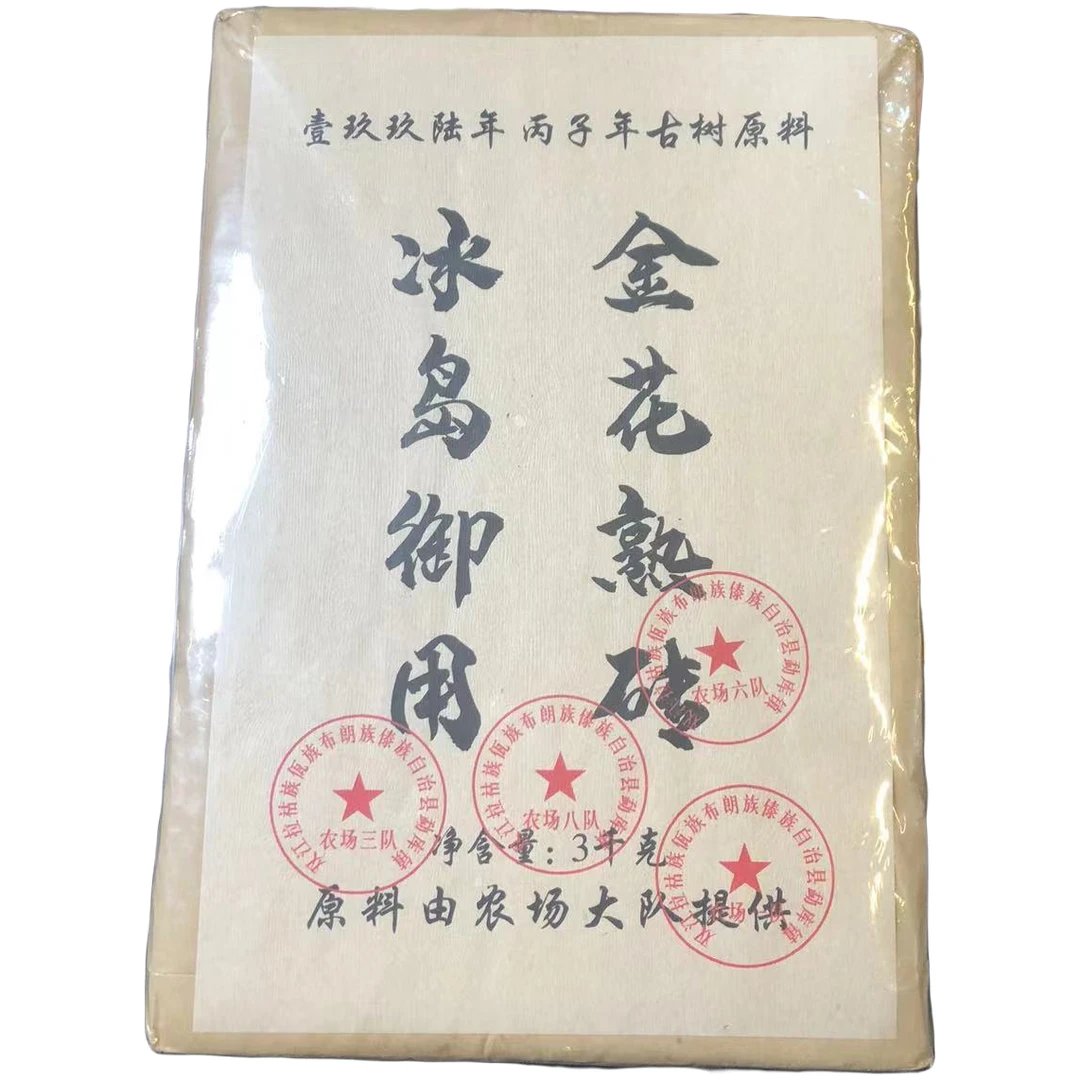 壹玖玖陆年丙子年古树原料
金花熟砖
冰岛御用
双江拉祜族佤族布朗族傣族自治县勐库镇
农场六队
双江拉祜族佤族布朗族傣族自治县勐库镇
农场三队
双江拉祜族佤族布朗族傣族自治县勐库镇
农场八队
双江拉祜族佤族布朗族傣族自治县勐库镇
净含量:3千克
原料由农场大队提供